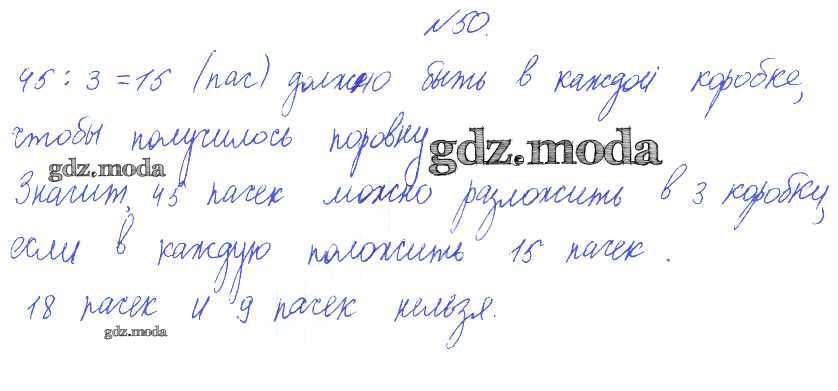 №50.
45 : 3 = 15 (пас) должно быть в каждой коробке,
чтобы получилось поровну
gdz.moda
gdz.moda
Значит, 45 пачек можно разложить в 3 коробки,
если в каждую положить 15 пачек.
18 пачек и 9 пачек нельзя.
gdz.moda